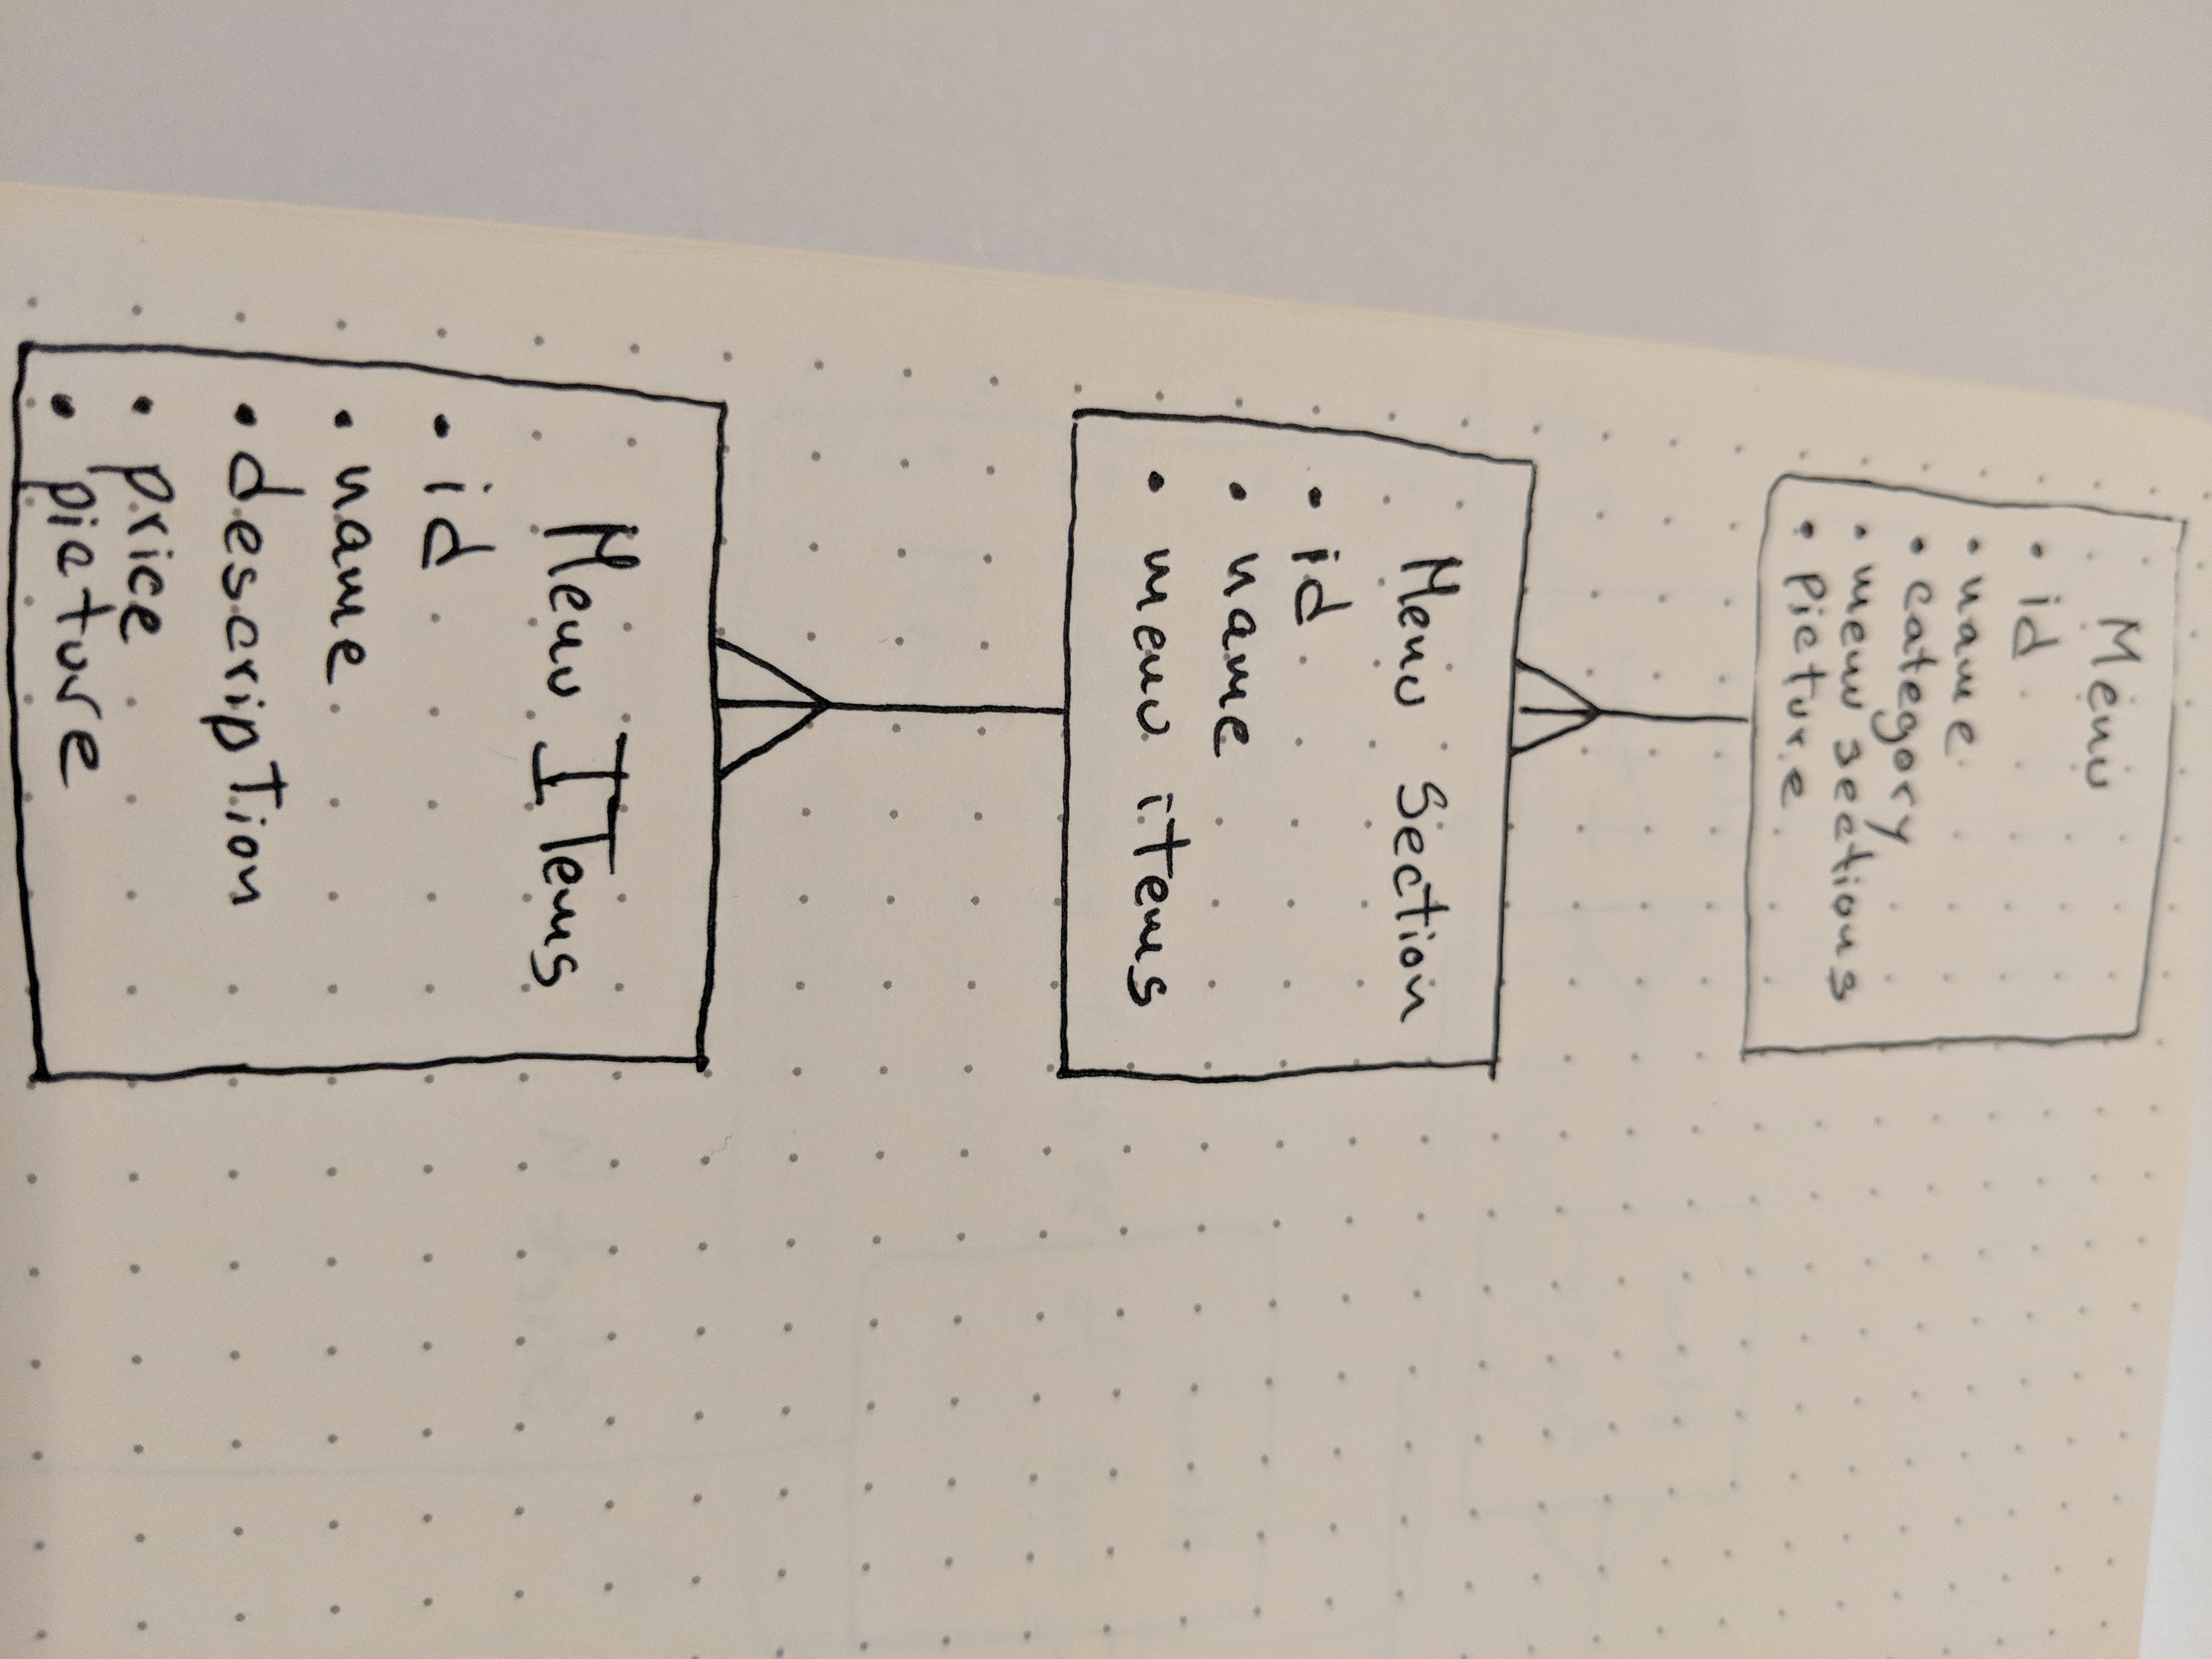 Menu
• id
• name
• category
• menu sections
• picture
Menu Section
• id
• name
• menu items
Menu ITems
• id
• name
• descripTion
• price
• picture